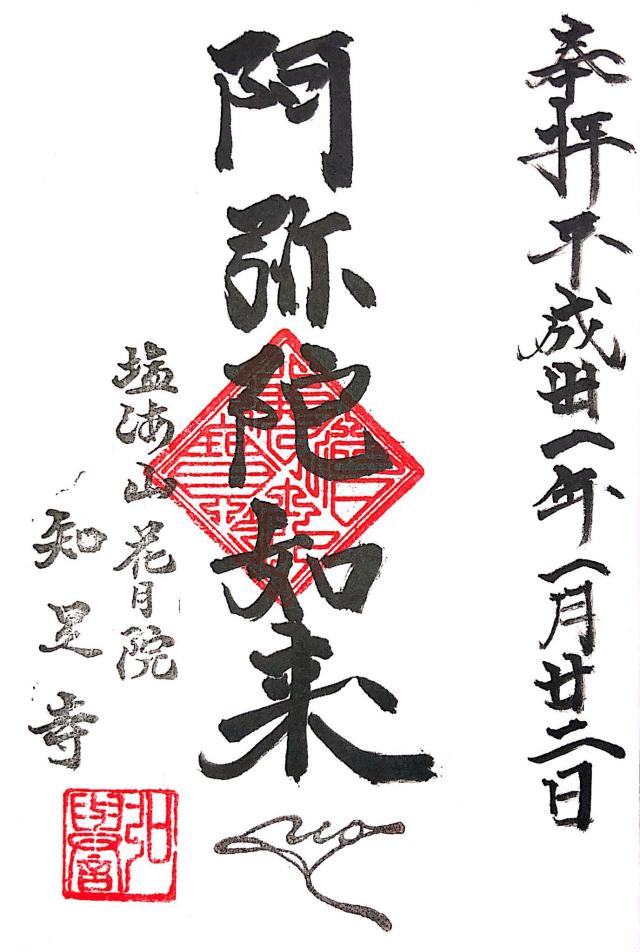 奉拝平成卅一年一月廿二日
阿弥陀如来
塩海山花月院
知足寺